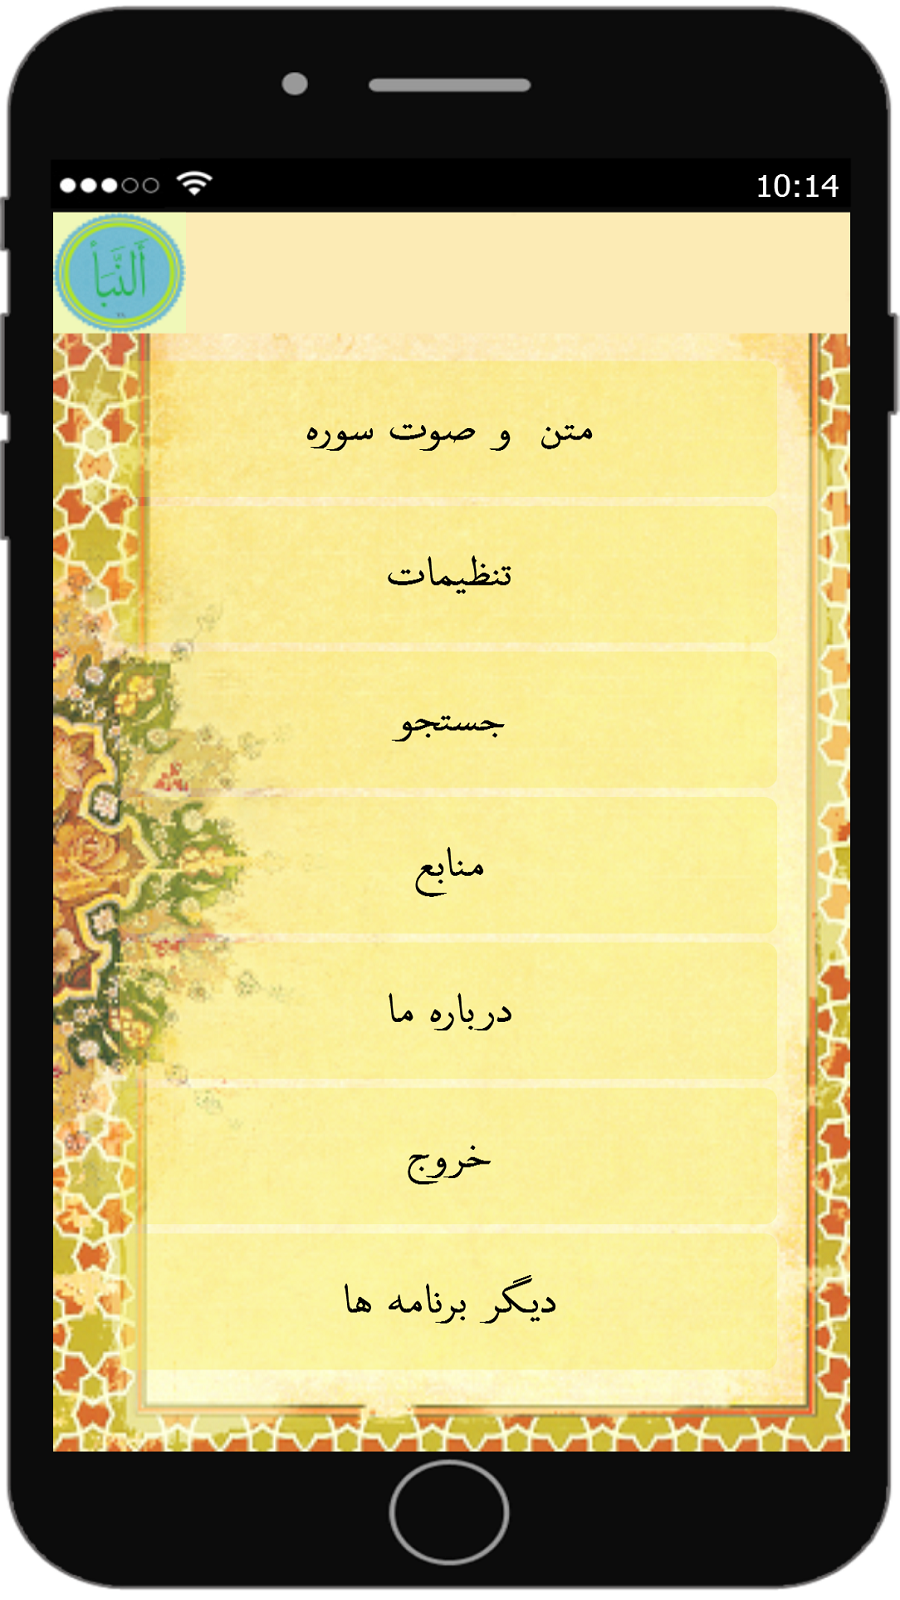 10:14
ألنَّبَأ
متن و صوت سوره
تنظیمات
جستجو
منابع
درباره ما
خروج
دیگر برنامه ها